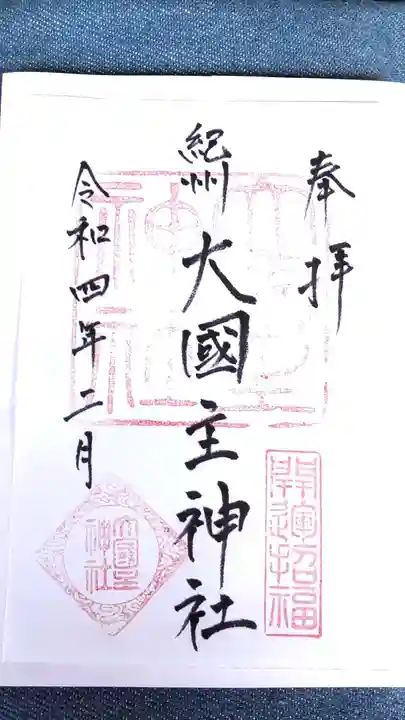 奉拝
紀州 大國主神社
令和四年二月
開運招福
大國主神社